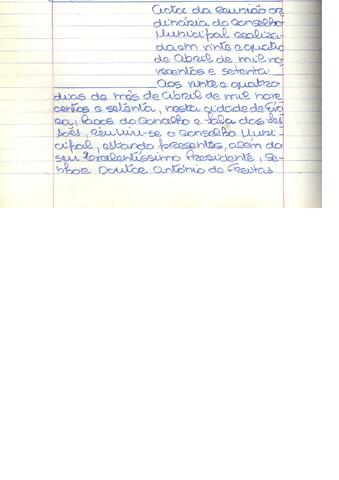 Acta da Reunião or
dinária do Conselho
Municipal realiza-
da em vinte e quatro
de Abril de mil no
vecentos e setenta.
Aos vinte e quatro
dias do mês de Abril de mil nove
centos e setenta, nesta cidade de
Paços do Concelho e Sala das Ses
sões, reuniu-se o Conselho Muni-
cipal, estando presentes, alem do
seu Excelentíssimo Presidente, Se-
nhor Doutor António de Freitas